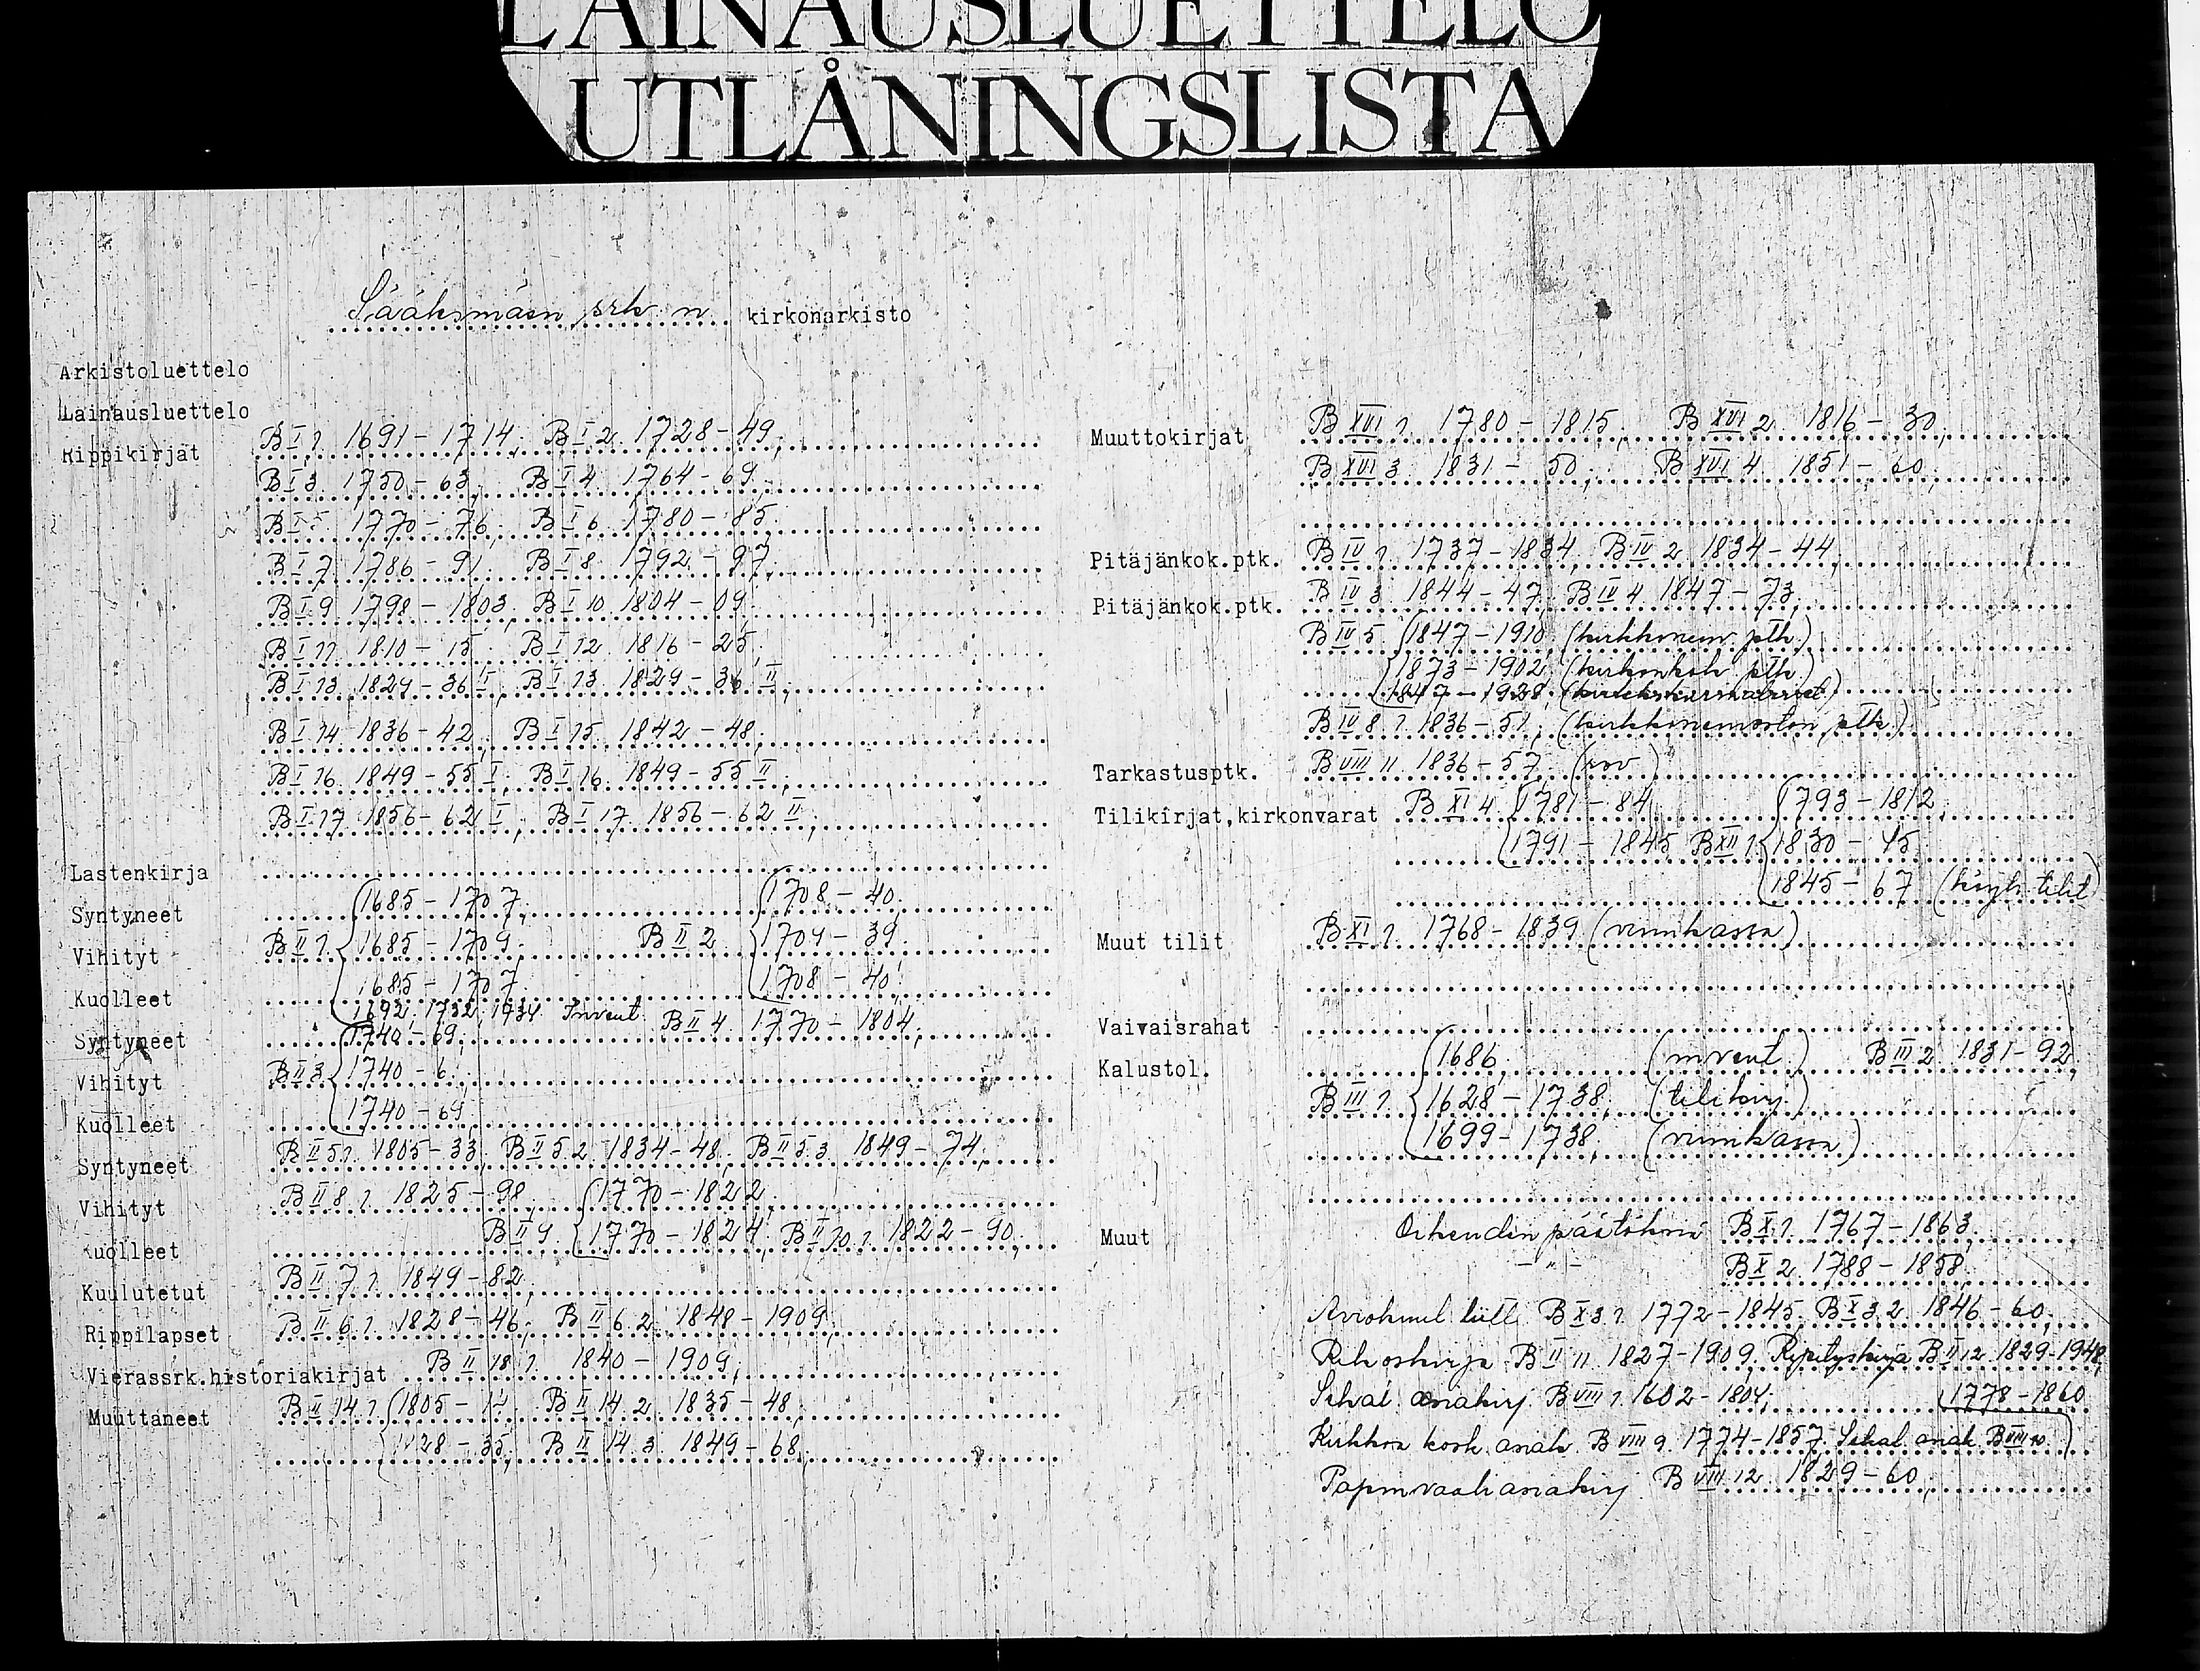 LAINAUSLUETTELO
UTLÅNINGSLISTA
Sääksmäen srk n kirkonarkisto
Arkistoluettelo
Lainausluettelo
Rippikirjat B I 1 1691-1714, B I 2 1728-49,
B I 3 1750-63, B I 4 1764-69,
B I 5 1770-76, B I 6 1780-85,
B I 7 1786-91, B I 8 1792-97,
B I 9 1798-1803, B I 10 1804-09,
B I 11 1810-15, B I 12 1816-25,
B I 13 1829-36 I, B I 13 1829-36 II,
B I 14 1836-42, B I 15 1842-48,
B I 16 1849-55 I, B I 16 1849-55 II,
B I 17 1856-62 I, B I 17 1856-62 II,
Lastenkirja
Syntyneet 1685-1707, 1708-40,
Vihityt B II 1 1685-1709, B II 2 1709-39,
Kuolleet 1685-1707, 1708-40,
1692, 1732, 1934 Invent. B II 4 1770-1804,
Syntyneet 1740-69,
Vihityt B II 3 1740-6
Kuolleet 1740-69
Syntyneet B II 5 1 1805-33, B II 5 2 1834-48, B II 5 3 1849-74,
Vihityt B II 8 1 1825-98, 1770-1822,
Kuolleet B II 9 1770-1824, B II 10 1 1822-90,
Kuulutetut B II 7 1 1849-82,
Rippilapset B II 6 1 1828-46, B II 6 2 1848-1909,
Vierassrk.historiakirjat B II 18 1 1840-1909,
Muuttaneet B II 14 1 1805-14 B II 14 2 1835-48,
1828-35, B II 14 3 1849-68,
Muuttokirjat B XVI 1 1780-1815, B XVI 2 1816-30,
B XVI 3 1831-50, B XVI 4 1851-60,
Pitäjänkok.ptk. B IV 1 1737-1834, B IV 2 1834-44,
Pitäjänkok.ptk. B IV 3 1844-47, B IV 4 1847-73,
B IV 5 1847-1910 (kirkkoneuv. ptk.)
1873-1902 (kirkonkok ptk.)
1847-1928
B IV 8 1 1836-51, (kirkkoneuvoston ptk.)
Tarkastusptk. B VIII 11 1836-57, (rov)
Tilikirjat,kirkonvarat B XI 4 1781-84, 1793-1812,
1791-1845 B XII 1 1830-45
1845-67 (köyh. tilit)
Muut tilit B XI 1 1768-1839 (viinikassa)
Vaivaisrahat
Kalustol. 1686, (invent.) B III 2 1831-92,
B III 1 1628-1738, (tilikirj)
1699-1738, (viinikassa)
Muut Oikeuden päätöksiä B X 1 1767-1863,
- " - B X 2 1788-1858,
Aviokuul. luett. B X 3 1 1772-1845, B X 3 2 1846-60,
Rikoskirja B II 11 1827-1909, Ripityskirja B II 12 1829-1948,
Sekal. asiakirj B VIII 1 1602-1804; 1778-1860
Kirkkoa kosk. asiak. B VIII 9 1774-1857 Sekal. asiak B VIII 10
Papinvaali asiakirj B VIII 12 1829-60,